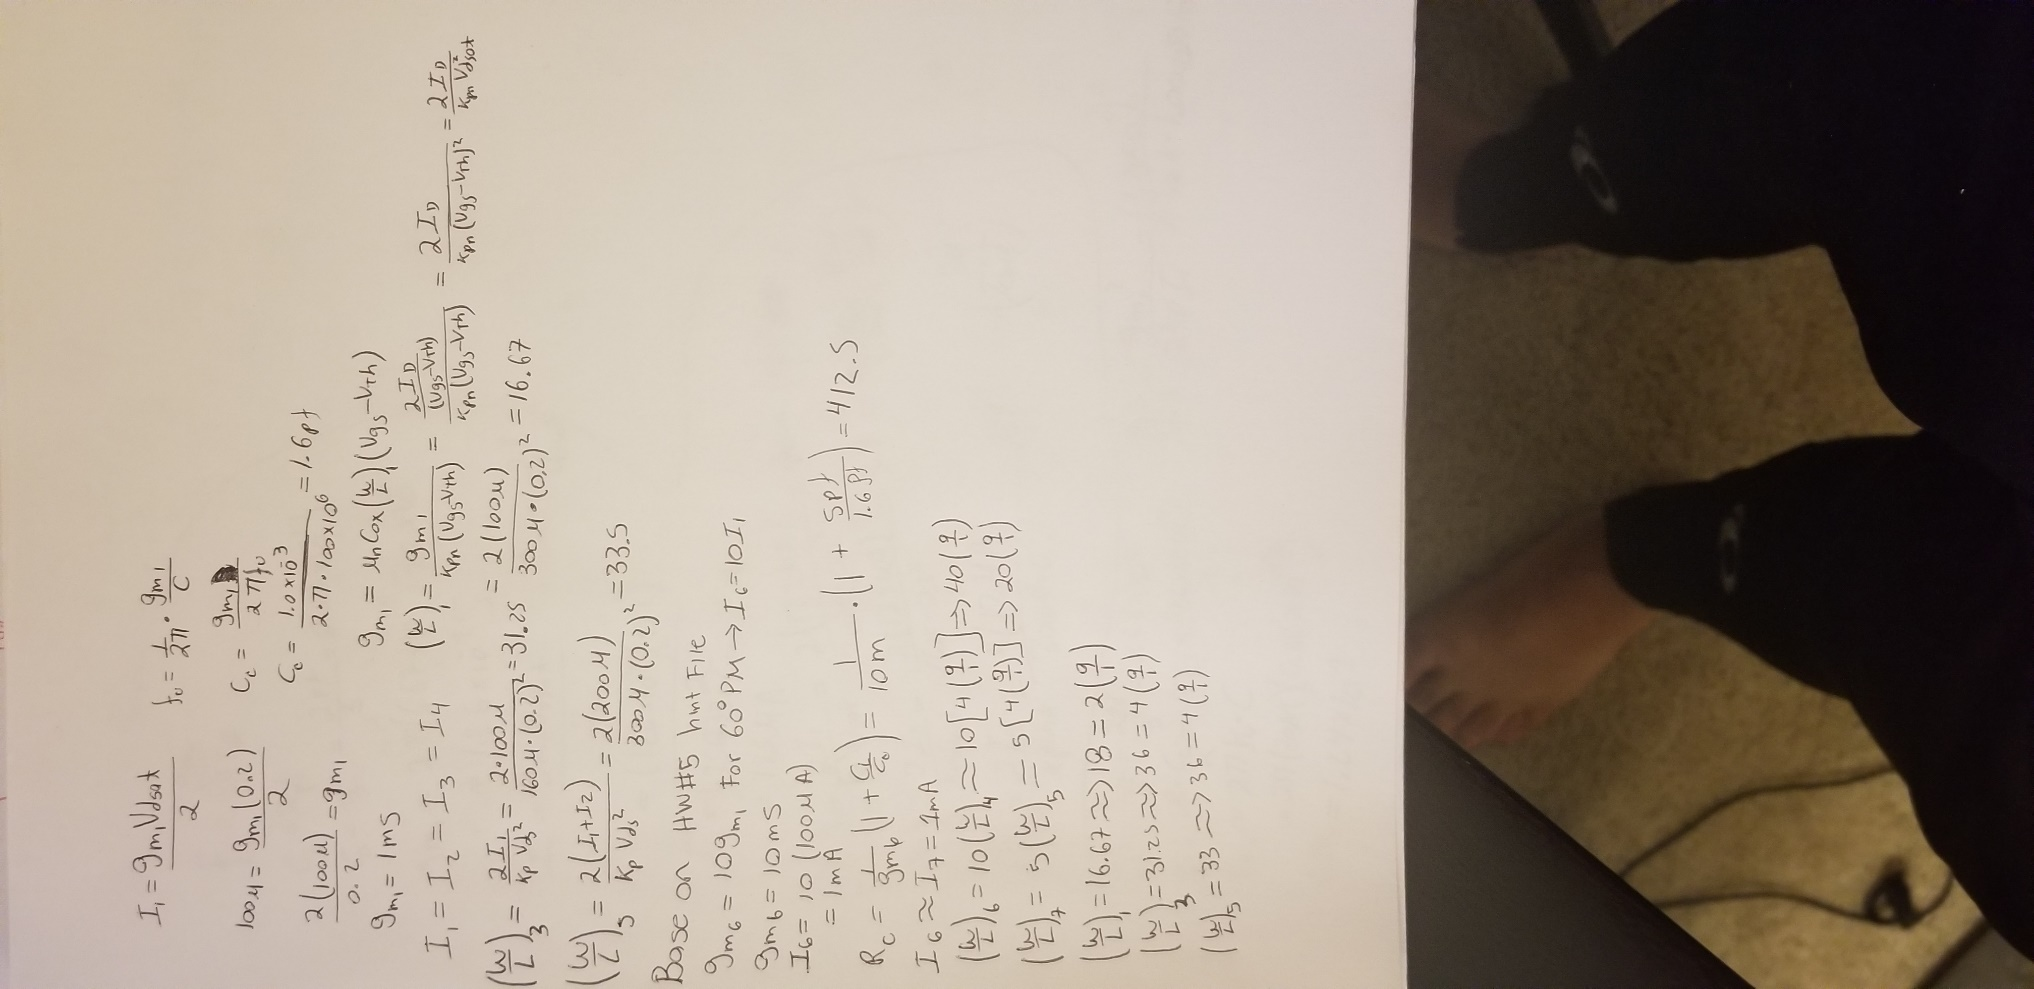 I₁ = gm₁Vdsat / 2    fᵤ = 1/2π · gm₁/C
100μ = gm₁(0.2) / 2    Cc = gm₁ / 2πfᵤ
2(100μ) / 0.2 = gm₁    Cc = 1.0x10⁻³ / 2·π·100x10⁶ = 1.6pf
gm₁ = 1ms    gm₁ = μnCox(W/L)₁(Vgs-Vth)
I₁ = I₂ = I₃ = I4    (W/L)₁ = gm₁ / Kpn(Vgs-Vth) = (2ID / (Vgs-Vth)) / Kpn(Vgs-Vth) = 2ID / Kpn(Vgs-Vth)² = 2ID / Kpn Vdsat²
(W/L)₃ = 2I₁ / Kp Vds² = 2·100μ / 160μ·(0.2)² = 31.25    = 2(100μ) / 300μ·(0.2)² = 16.67
(W/L)₅ = 2(I₁+I₂) / Kp Vds² = 2(200μ) / 300μ·(0.2)² = 33.5
Base on HW#5 hint File
gm₆ = 10gm₁ for 60° PM → I₆ = 10I₁
gm6 = 10ms
I6 = 10(100μA)
= 1mA
Rc = 1/gm6 (1 + Cl/Cc) = 1/10m · (1 + 5pf/1.6pf) = 412.5
I6 ≈ I7 = 1mA
(W/L)₆ = 10(W/L)₄ ≈ 10[4(9/1)] ⇒ 40(9/1)
(W/L)₇ = 5(W/L)₅ = 5[4(9/1)] ⇒ 20(9/1)
(W/L)₁ = 16.67 ≈> 18 = 2(9/1)
(W/L)₃ = 31.25 ≈> 36 = 4(9/1)
(W/L)₅ = 33 ≈> 36 = 4(9/1)